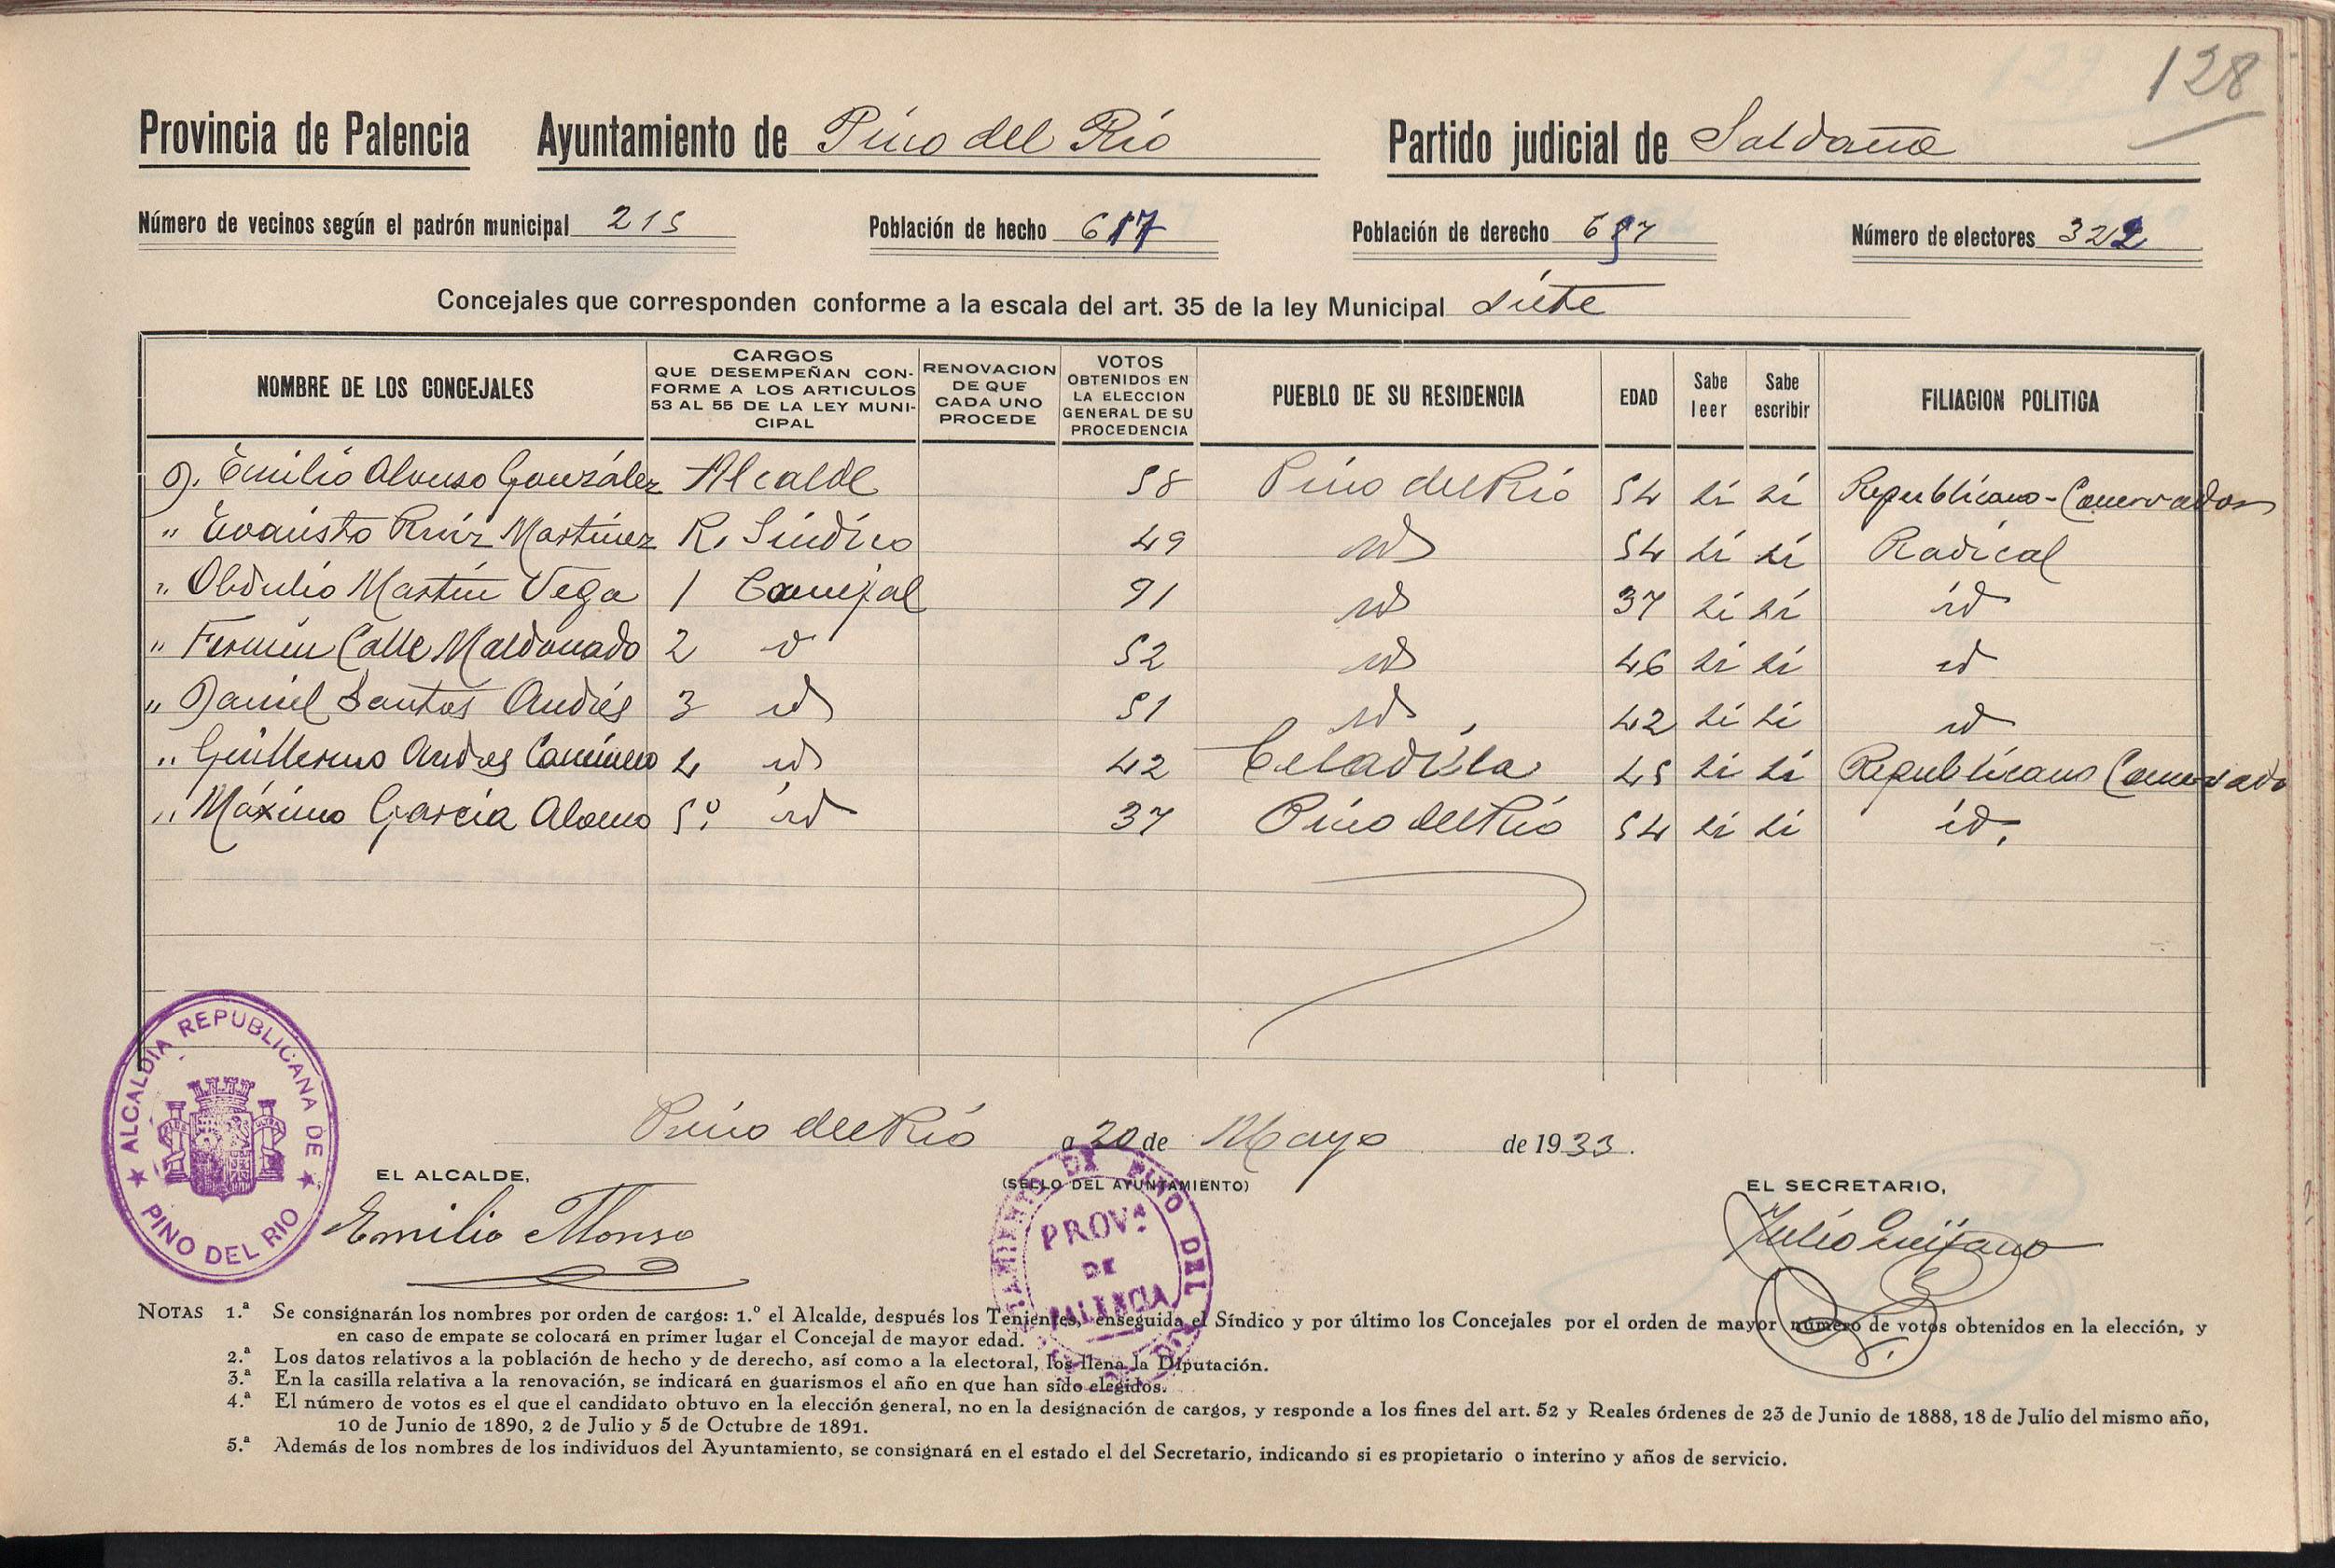 128
Provincia de Palencia Ayuntamiento de Pino del Río Partido judicial de Saldaña
Número de vecinos según el padrón municipal 215 Población de hecho Población de derecho Número de electores 322
Concejales que corresponden conforme a la escala del art. 35 de la ley Municipal siete
NOMBRE DE LOS CONCEJALES
CARGOS
QUE DESEMPEÑAN CON-
FORME A LOS ARTICULOS
53 AL 55 DE LA LEY MUNI-
CIPAL
RENOVACION
DE QUE
CADA UNO
PROCEDE
VOTOS
OBTENIDOS EN
LA ELECCION
GENERAL DE SU
PROCEDENCIA
PUEBLO DE SU RESIDENCIA
EDAD
Sabe
leer
Sabe
escribir
FILIACION POLITICA
D. Emilio Alonso González Alcalde 58 Pino del Río 54 sí sí Republicano-Conservador
" Evaristo Ruiz Martínez R. Síndico 49 id 54 sí sí Radical
" Obdulio Martín Vega 1 Concejal 91 id 37 sí sí id
" Fermín Calle Maldonado 2 52 id 46 sí sí id
" Daniel Santos Andrés 3 id 51 id 42 sí sí id
" Guillermo Andres Caminero 4 id 42 Celadilla 45 sí sí Republicano Conservado
" Máximo García Alonso 5º id 37 Pino del Río 54 sí sí id.
Pino del Río a 20 de Mayo de 1933.
EL ALCALDE, (SELLO DEL AYUNTAMIENTO) EL SECRETARIO,
Emilio Alonso Julio Quijano
ALCALDIA REPUBLICANA DE
PINO DEL RIO
PROVª
DE
PALENCIA
NOTAS 1.ª Se consignarán los nombres por orden de cargos: 1.º el Alcalde, después los Tenientes, enseguida el Síndico y por último los Concejales por el orden de mayor número de votos obtenidos en la elección, y
en caso de empate se colocará en primer lugar el Concejal de mayor edad.
2.ª Los datos relativos a la población de hecho y de derecho, así como a la electoral, los llena la Diputación.
3.ª En la casilla relativa a la renovación, se indicará en guarismos el año en que han sido elegidos.
4.ª El número de votos es el que el candidato obtuvo en la elección general, no en la designación de cargos, y responde a los fines del art. 52 y Reales órdenes de 23 de Junio de 1888, 18 de Julio del mismo año,
10 de Junio de 1890, 2 de Julio y 5 de Octubre de 1891.
5.ª Además de los nombres de los individuos del Ayuntamiento, se consignará en el estado el del Secretario, indicando si es propietario o interino y años de servicio.